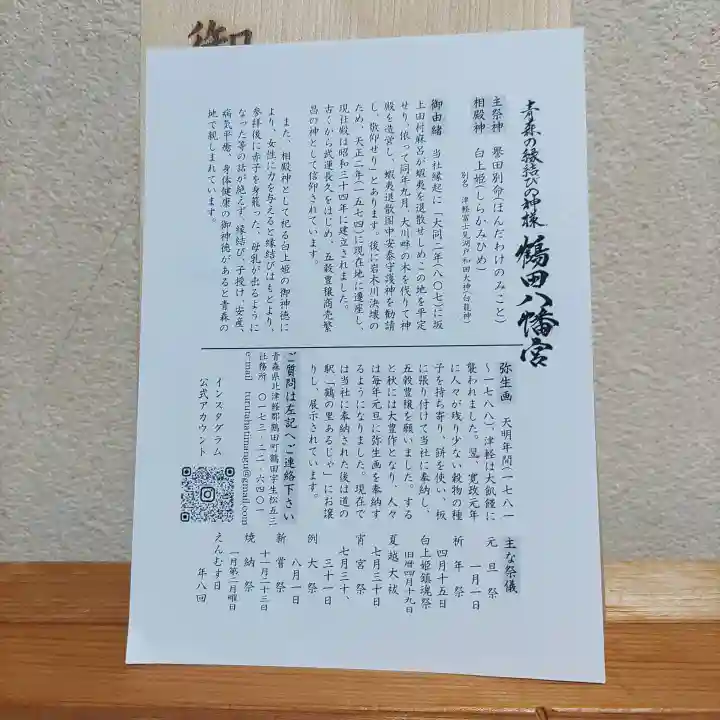 青森の縁結びの神様
鶴田八幡宮
主祭神　誉田別命(ほんだわけのみこと)
相殿神　白上姫(しらかみひめ)
別名　津軽富士見湖戸和田大神(白龍神)
御由緒　当社縁起に「大同二年(八〇七)に坂
上田村麻呂が蝦夷を退散せしめこの地を平定
せり、依って同年九月、大川畔の木を伐りて神
殿を造営し、蝦夷退散国中安泰守護神を勧請
し、敬仰せり」とあります。後に岩木川決壊の
ため、天正二年(一五七四)に現在地に遷座し、
現社殿は昭和三十四年に建立されました。
古くから武運長久をはじめ、五穀豊穣商売繁
昌の神として信仰されています。
また、相殿神として祀る白上姫の御神徳に
より、女性に力を与えると縁結びはもとより、
参拝後に赤子を身籠った、母乳が出るように
なった等の話が絶えず、縁結び、子授け、安産、
病気平癒、身体健康の御神徳があると青森の
地で親しまれています。
弥生画　天明年間(一七八一
～一七八八)、津軽は大飢饉に
襲われました。翌、寛政元年
に人々が残り少ない穀物の種
子を持ち寄り、餅を使い、板
に張り付けて当社に奉納し、
五穀豊穣を願いました。する
と秋には大豊作となり、人々
は毎年元旦に弥生画を奉納す
るようになりました。現在で
は当社に奉納された後は道の
駅「鶴の里あるじゃ」にお譲
りし、展示されています。
ご質問は左記へご連絡下さい
青森県北津軽郡鶴田町鶴田字生松五三
社務所　〇一七三-二二-六四〇一
e-mail　turutahatimangu@gmail.com
インスタグラム
公式アカウント
主な祭儀
元旦祭
一月一日
祈年祭
四月十五日
白上姫鎮魂祭
旧暦四月十九日
夏越大祓
七月三十日
宵宮祭
七月三十、
三十一日
例大祭
八月一日
新嘗祭
十一月二十三日
焼納祭
一月第二月曜日
えんむす日
年八回